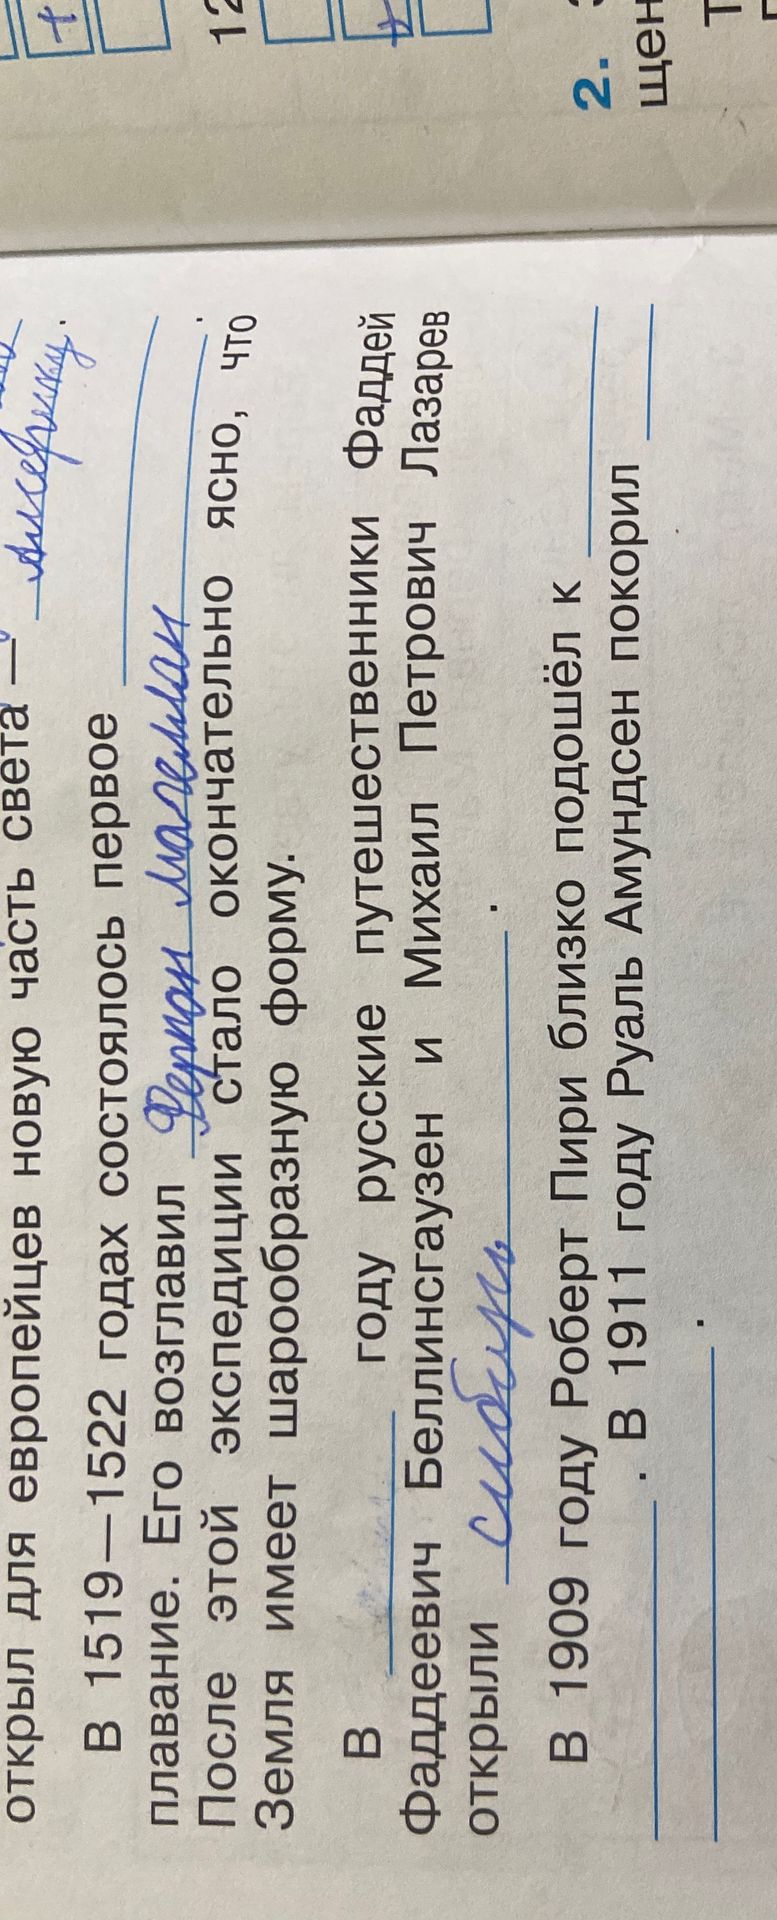 открыл для европейцев новую часть света — Америку.
В 1519—1522 годах состоялось первое
плавание. Его возглавил Фернан магеллан.
После этой экспедиции стало окончательно ясно, что
Земля имеет шарообразную форму.
В году русские путешественники Фаддей
Фаддеевич Беллинсгаузен и Михаил Петрович Лазарев
открыли сибирь.
В 1909 году Роберт Пири близко подошёл к
. В 1911 году Руаль Амундсен покорил
.
12
2.
щен